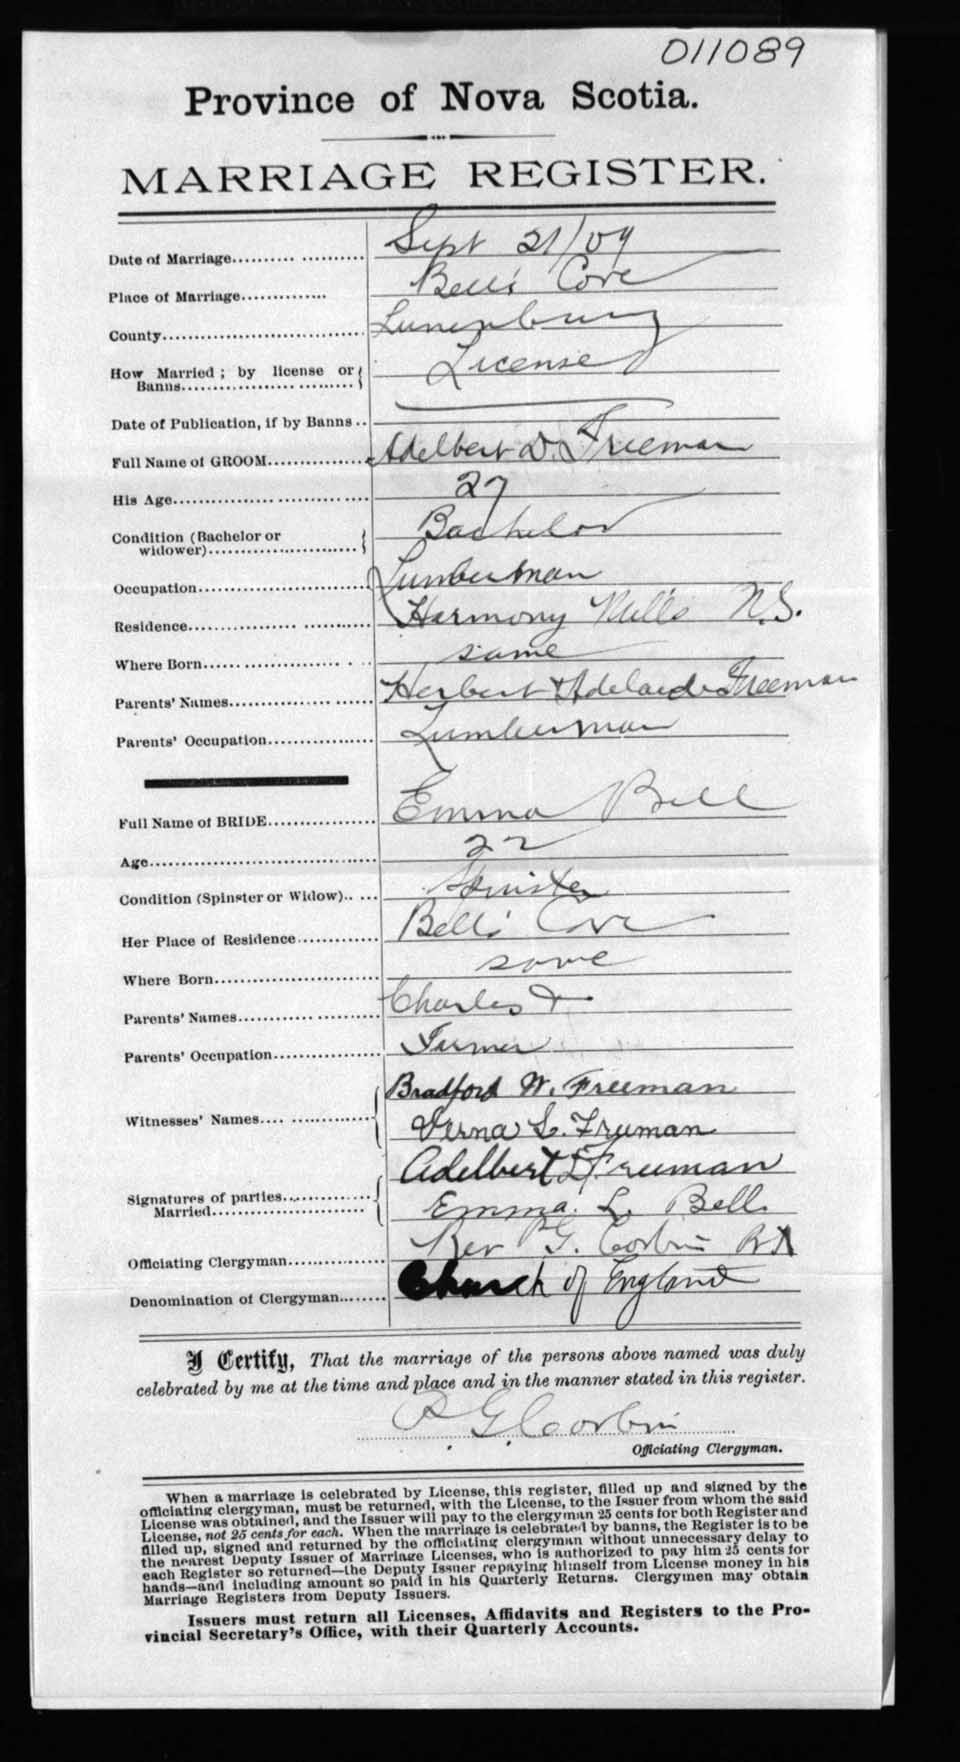 011089
Province of Nova Scotia.
MARRIAGE REGISTER.
Date of Marriage Sept 21/09
Place of Marriage Bell's Cove
County Lunenburg
How Married; by license or Banns License
Date of Publication, if by Banns
Full Name of GROOM Adelbert D. Freeman
His Age 27
Condition (Bachelor or widower) Bachelor
Occupation Lumberman
Residence Harmony Mills N.S.
Where Born same
Parents' Names Herbert & Adelaide Freeman
Parents' Occupation Lumberman
Full Name of BRIDE Emma Bell
Age 22
Condition (Spinster or Widow) Spinster
Her Place of Residence Bell's Cove
Where Born same
Parents' Names Charles &
Parents' Occupation Farmer
Witnesses' Names Bradford W. Freeman
Verna L. Freeman
Signatures of parties Married Adelbert D Freeman
Emma. L. Bell.
Officiating Clergyman Rev P G. Corbin BA
Denomination of Clergyman Church of England
I Certify, That the marriage of the persons above named was duly
celebrated by me at the time and place and in the manner stated in this register.
P G Corbin
Officiating Clergyman.
When a marriage is celebrated by License, this register, filled up and signed by the
officiating clergyman, must be returned, with the License, to the Issuer from whom the said
License was obtained, and the Issuer will pay to the clergyman 25 cents for both Register and
License, not 25 cents for each. When the marriage is celebrated by banns, the Register is to be
filled up, signed and returned by the officiating clergyman without unnecessary delay to
the nearest Deputy Issuer of Marriage Licenses, who is authorized to pay him 25 cents for
each Register so returned—the Deputy Issuer repaying himself from License money in his
hands—and including amount so paid in his Quarterly Returns. Clergymen may obtain
Marriage Registers from Deputy Issuers.
Issuers must return all Licenses, Affidavits and Registers to the Pro-
vincial Secretary's Office, with their Quarterly Accounts.